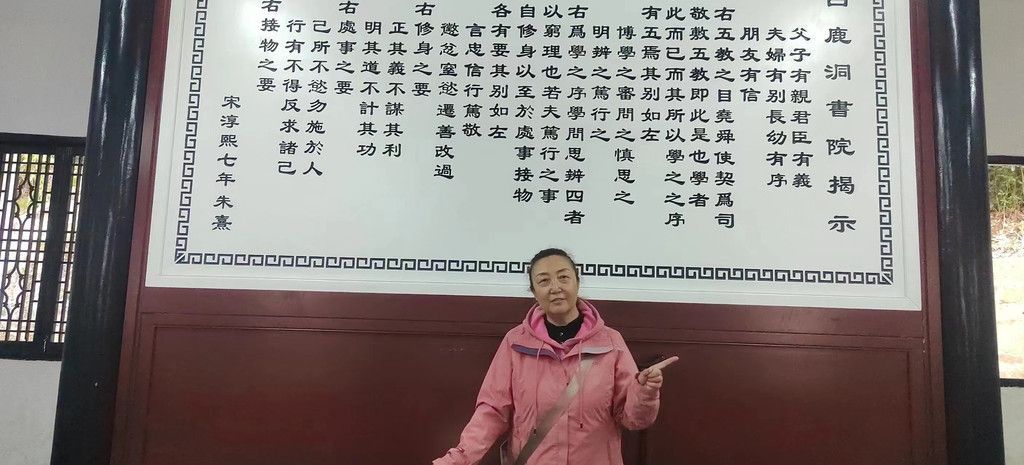 白鹿洞書院揭示
父子有親君臣有義
夫婦有別長幼有序
朋友有信
右五教之目堯舜使契爲司
敬敷五教即此是也學者
此而已而其所以學之之序
有五焉其別如左
博學之審問之慎思之
明辨之篤行之
右爲學之序學問思辨四者
以窮理也若夫篤行之事
自修身以至於處事接物
各有要其別如左
言忠信行篤敬
懲忿窒慾遷善改過
右修身之要
正其義不謀其利
明其道不計其功
右處事之要
己所不慾勿施於人
行有不得反求諸己
右接物之要
宋淳熙七年朱熹